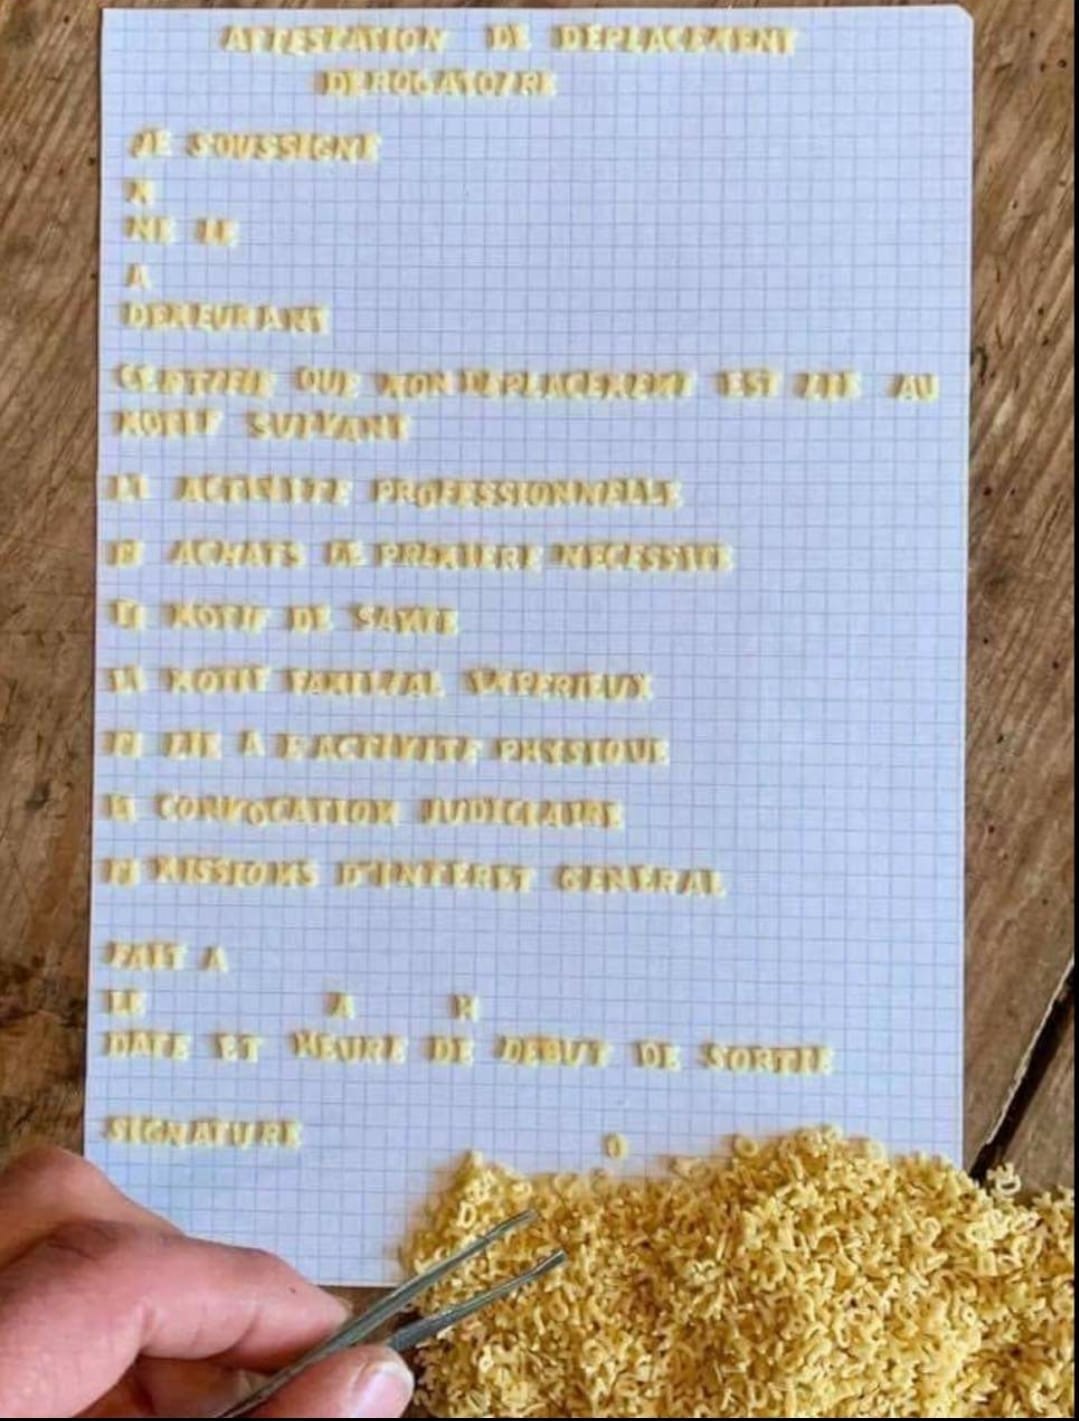 ATTESTATION DE DEPLACEMENT
DEROGATOIRE
JE SOUSSIGNE
X
NE LE
A
DEMEURANT
CERTIFIE QUE MON DEPLACEMENT EST LIE AU
MOTIF SUIVANT
[] ACTIVITE PROFESSIONNELLE
[] ACHATS DE PREMIERE NECESSITE
[] MOTIF DE SANTE
[] MOTIF FAMILIAL IMPERIEUX
[] LIE A L'ACTIVITE PHYSIQUE
[] CONVOCATION JUDICIAIRE
[] MISSIONS D'INTERET GENERAL
FAIT A
LE A H
DATE ET HEURE DE DEBUT DE SORTIE
SIGNATURE